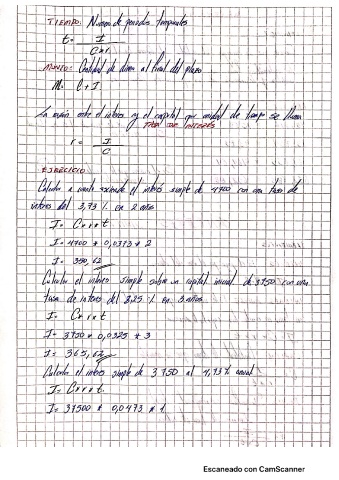 TIEMPO: Numero de periodos temporales
t = I
C * r
MONTO: Cantidad de dinero al final del plazo
M = C + I
La razón entre el interes y el capital por unidad de tiempo se llama
TASA DE INTERÉS
r = I
C
EJERCICIO
Calcular a cuanto asciende el interés simple de 4700 con una tasa de
interes del 3,73 % en 2 años
I = C * r * t
I = 4700 * 0,0373 * 2
I = 350,62
Calcular el interes simple sobre un capital inicial de 3750 con una
tasa de interes del 3,25 % en 3 años
I = C * r * t
I = 3750 * 0,0325 * 3
I = 365,62
Calcular el interes simple de 3750 al 4,73 % anual
I = C * r * t
I = 37500 * 0,0473 * 1
Escaneado con CamScanner